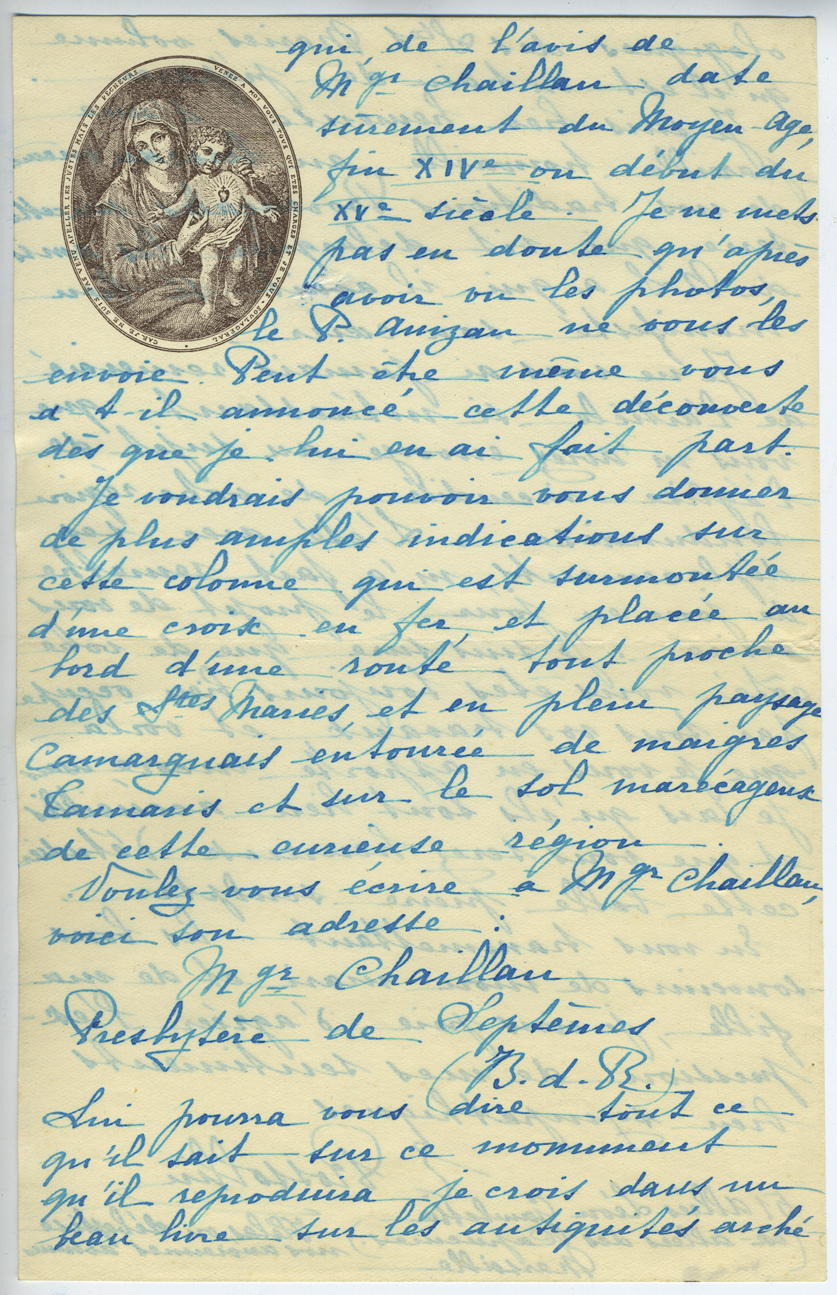 CAR JE NE SUIS PAS VENU APELLER LES JUSTES MAIS LES PECHEURS
VENES A MOI VOUS TOUS QUI ETES CHARGES ET JE VOUS SOULAGERAI
qui de l'avis de
Mgr Chaillan date
sûrement du Moyen-Age,
fin XIVe ou début du
XVe siècle. Je ne mets
pas en doute qu'après
avoir vu les photos,
le P. Anizan ne vous les
envoie. Peut être même vous
a t-il annoncé cette découverte
dès que je lui en ai fait part.
Je voudrais pouvoir vous donner
de plus amples indications sur
cette colonne qui est surmontée
d'une croix en fer, et placée au
bord d'une route tout proche
des Stes Maries, et en plein paysage
Camarguais entourée de maigres
Tamaris et sur le sol marécageux
de cette curieuse région.
Voulez-vous écrire à Mgr Chaillan,
voici son adresse :
Mgr Chaillan
Presbytère de Septèmes
(B. d. R.)
Lui pourra vous dire tout ce
qu'il sait sur ce monument
qu'il reproduira je crois dans un
beau livre sur les antiquités arché